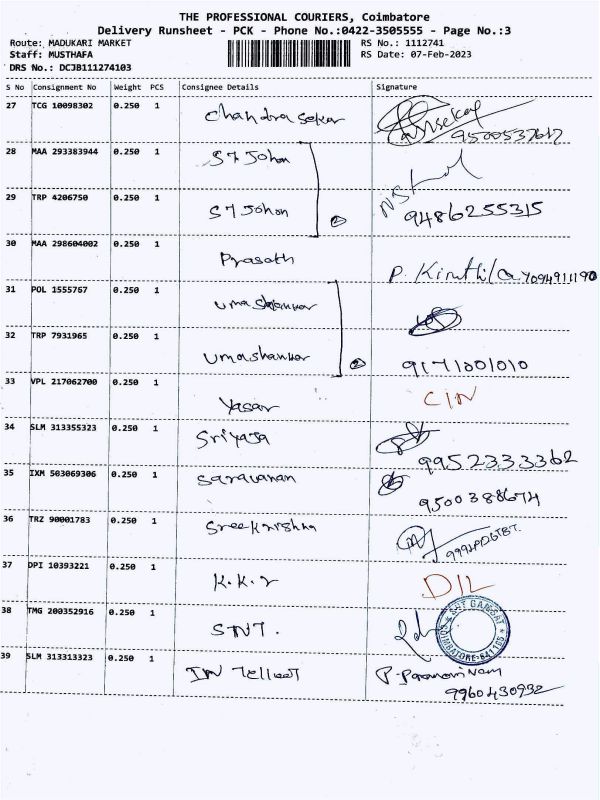 THE PROFESSIONAL COURIERS, Coimbatore
Delivery Runsheet - PCK - Phone No.:0422-3505555 - Page No.:3
Route: MADUKARI MARKET
Staff: MUSTHAFA
DRS No.: DCJB111274103
RS No.: 1112741
RS Date: 07-Feb-2023
S No Consignment No Weight PCS Consignee Details Signature
27 TCG 10098302 0.250 1 Chandra Sekar
28 MAA 293383944 0.250 1 ST Johon
29 TRP 4206750 0.250 1 ST Johon 2 9486255315
30 MAA 298604002 0.250 1 Prasath P. Kiruthika 7094911190
31 POL 1555767 0.250 1 Umashankar
32 TRP 7931965 0.250 1 Umashankar 2 9171001010
33 VPL 217062700 0.250 1 Yasar C/N
34 SLM 313355323 0.250 1 Sriyaja 9952333362
35 IXM 503069306 0.250 1 Saravanan 9500388674
36 TRZ 90001783 0.250 1 Sreekrishna
37 DPI 10393221 0.250 1 K.K.r D/L
38 TMG 200352916 0.250 1 SNT. COIMBATORE-641105
39 SLM 313313323 0.250 1 9960430932